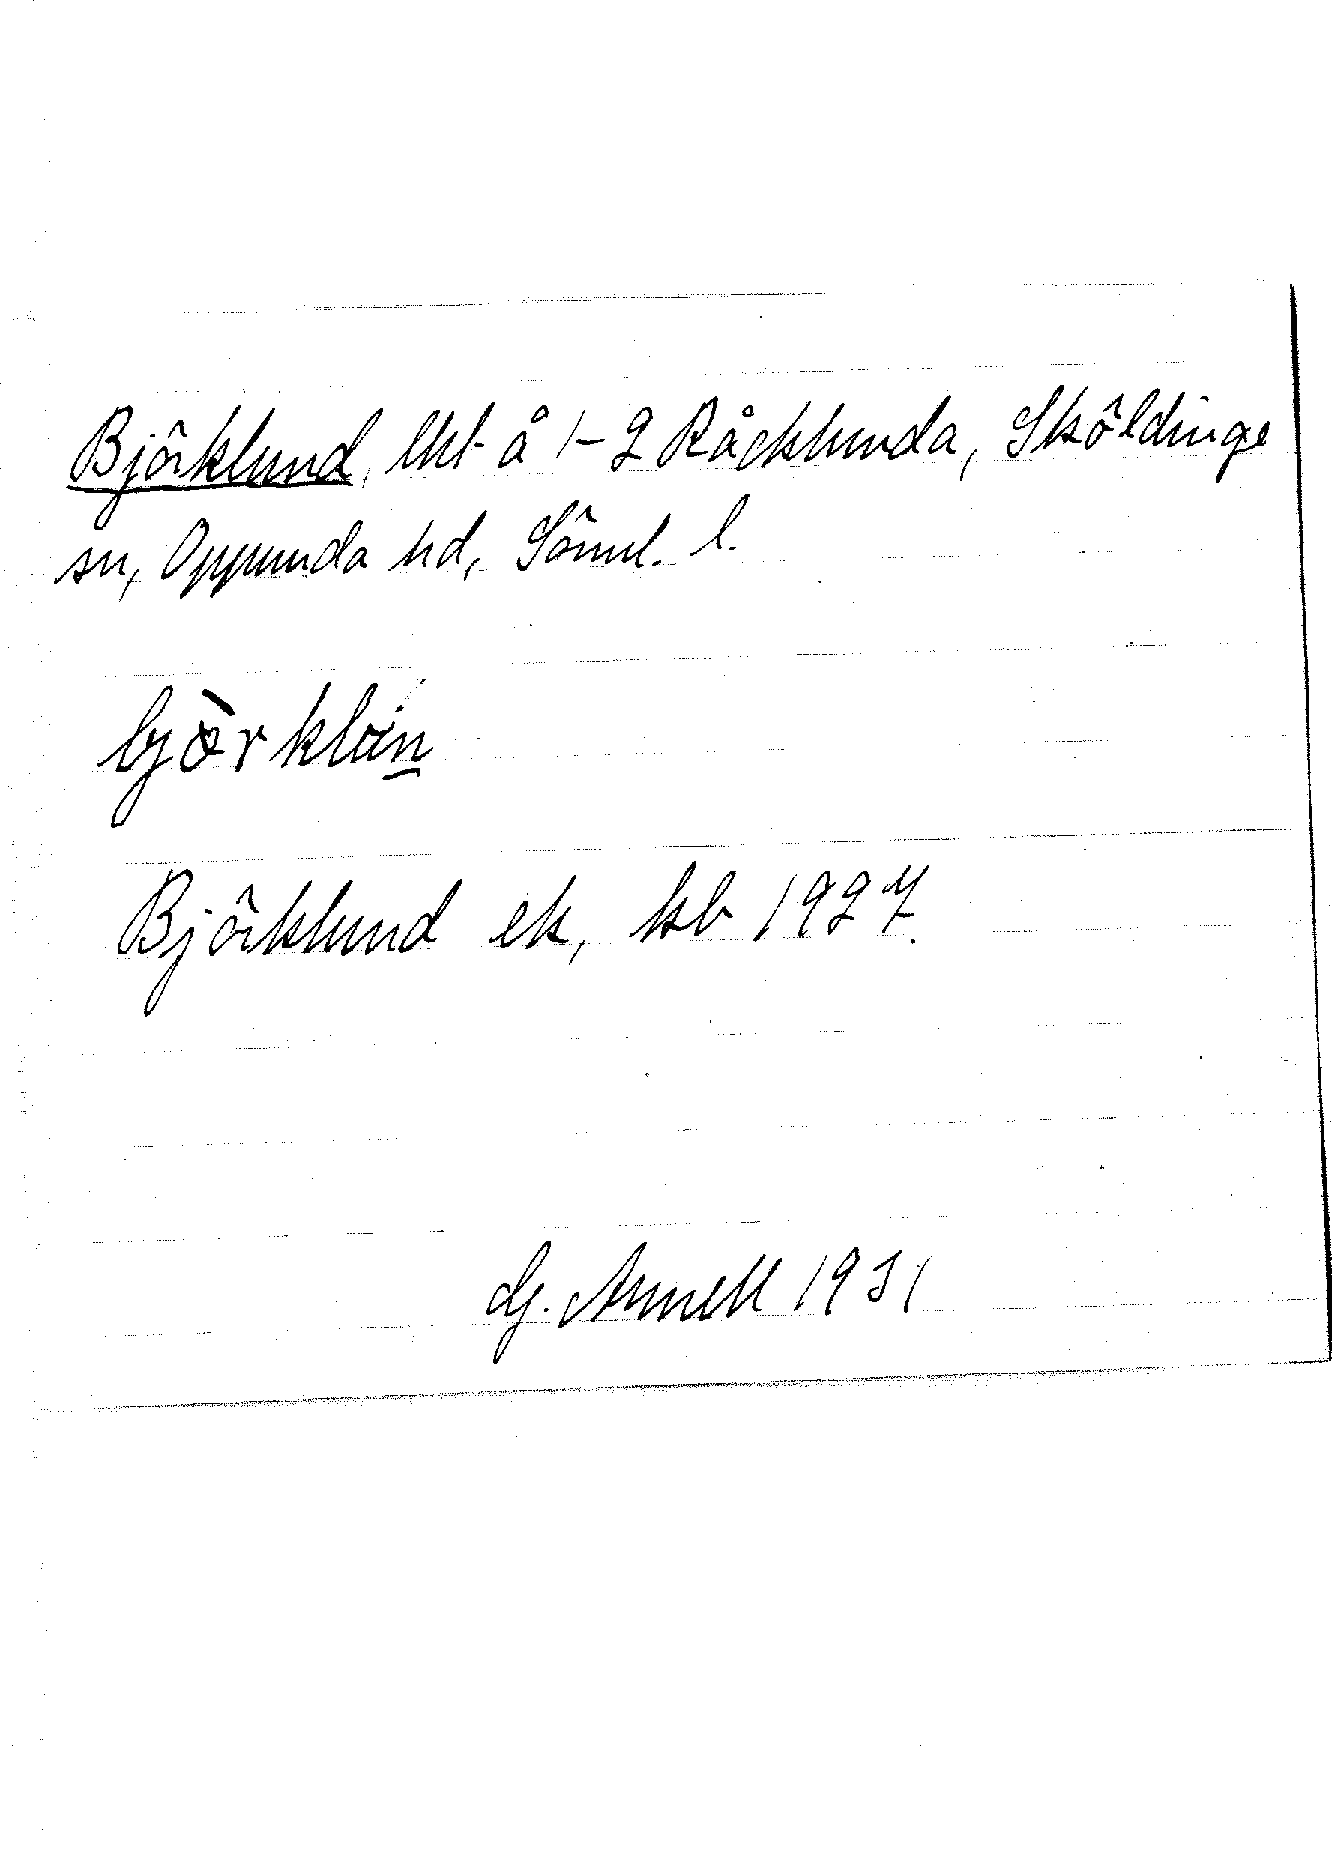 Björklund, lht å 1-2 Råcklunda, Sköldinge
sn, Oppunda hd, Söml. l.
bjö̀rklün̲
Björklund ek, kb 1927.
G. Arnell 1931